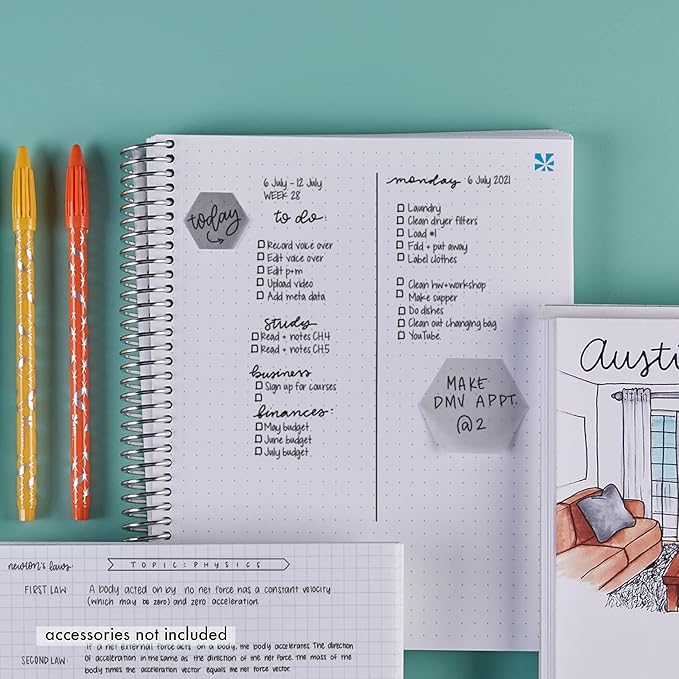 6 July - 12 July
WEEK 28
today
to do:
Record voice over
Edit voice over
Edit p+m
Upload video
Add meta data
study
Read + notes CH.4
Read + notes CH.5
business
Sign up for courses
finances:
May budget
June budget
July budget
monday 6 July 2021
Laundry
Clean dryer filters
Load #1
Fold + put away
Label clothes
Clean hw+workshop
Make supper
Do dishes
Clean out changing bag
YouTube
MAKE
DMV APPT.
@2
Austi
newton's laws:
TOPIC: PHYSICS
FIRST LAW: A body acted on by no net force has a constant velocity
(which may be zero) and zero acceleration.
accessories not included
If a net external force acts on a body, the body accelerates. The direction
SECOND LAW: of acceleration is the same as the direction of the net force. The mass of the
body times the acceleration vector equals the net force vector.